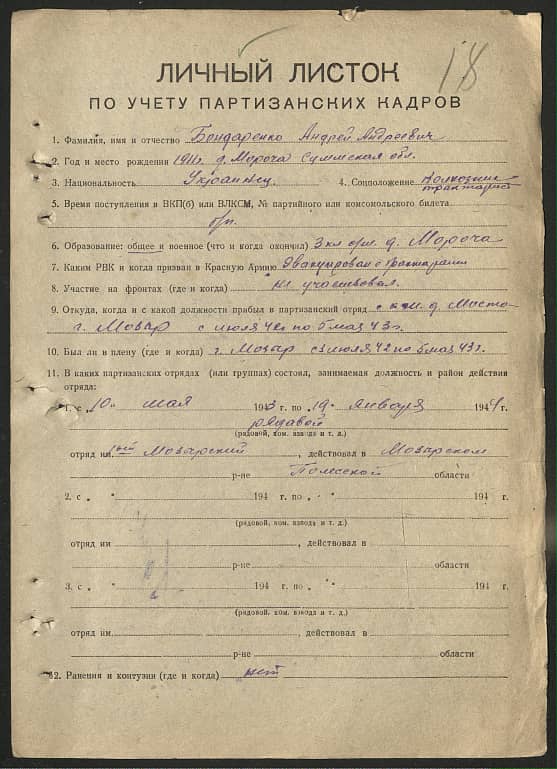 18
ЛИЧНЫЙ ЛИСТОК
ПО УЧЕТУ ПАРТИЗАНСКИХ КАДРОВ
1. Фамилия, имя и отчество Бондаренко Андрей Андреевич
2. Год и место рождения 1911г. д. Мороча Суммская обл.
3. Национальность Украинец 4. Соцположение колхозник
тракторист
5. Время поступления в ВКП(б) или ВЛКСМ, № партийного или комсомольского билета
б/п.
6. Образование: общее и военное (что и когда окончил) 3 кл д. Мороча
7. Каким РВК и когда призван в Красную Армию Эвакуирован с тракторами
8. Участие на фронтах (где и когда) не участвовал.
9. Откуда, когда и с какой должности прибыл в партизанский отряд с д.
г. Мозар с июля 42г по 5 мая 43г.
10. Был ли в плену (где и когда) г. Мозар с июля 42 по 5 мая 43г.
11. В каких партизанских отрядах (или группах) состоял, занимаемая должность и район действия
отряда:
1. с „10" мая 1943 г. по „19" января 1944 г.
рядавой
(рядовой, ком. взвода и т. д.)
отряд им 1ый Мозарский, действовал в Мозарском
р-не Полесской области
2. с „ " 194 г. по „ " 194 г.
(рядовой, ком. взвода и т. д.)
отряд им , действовал в
р-не области
3. с „ " 194 г. по „ " 194 г.
(рядовой, ком. взвода и т. д.)
отряд им , действовал в
р-не области
12. Ранения и контузии (где и когда) нет